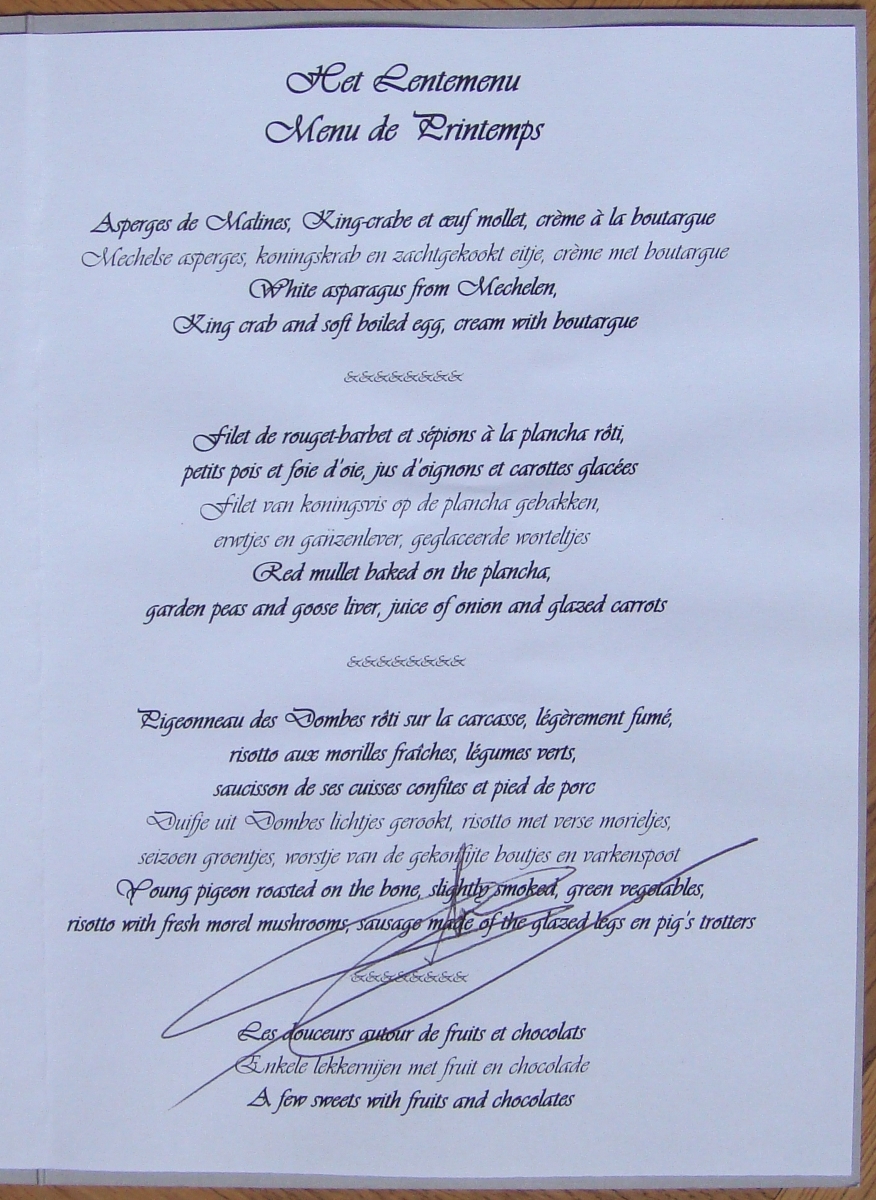 Het Lentemenu
Menu de Printemps
Asperges de Malines, King-crabe et œuf mollet, crème à la boutargue
Mechelse asperges, koningskrab en zachtgekookt eitje, crème met boutargue
White asparagus from Mechelen,
King crab and soft boiled egg, cream with boutargue
&&&&&&&&
Filet de rouget-barbet et sépions à la plancha rôti,
petits pois et foie d'oie, jus d'oignons et carottes glacées
Filet van koningsvis op de plancha gebakken,
erwtjes en ganzenlever, geglaceerde worteltjes
Red mullet baked on the plancha,
garden peas and goose liver, juice of onion and glazed carrots
&&&&&&&&
Pigeonneau des Dombes rôti sur la carcasse, légèrement fumé,
risotto aux morilles fraîches, légumes verts,
saucisson de ses cuisses confites et pied de porc
Duifje uit Dombes lichtjes gerookt, risotto met verse morieljes,
seizoen groentjes, worstje van de gekonfijte boutjes en varkenspoot
Young pigeon roasted on the bone, slightly smoked, green vegetables,
risotto with fresh morel mushrooms, sausage made of the glazed legs en pig's trotters
&&&&&&&&
Les douceurs autour de fruits et chocolats
Enkele lekkernijen met fruit en chocolade
A few sweets with fruits and chocolates